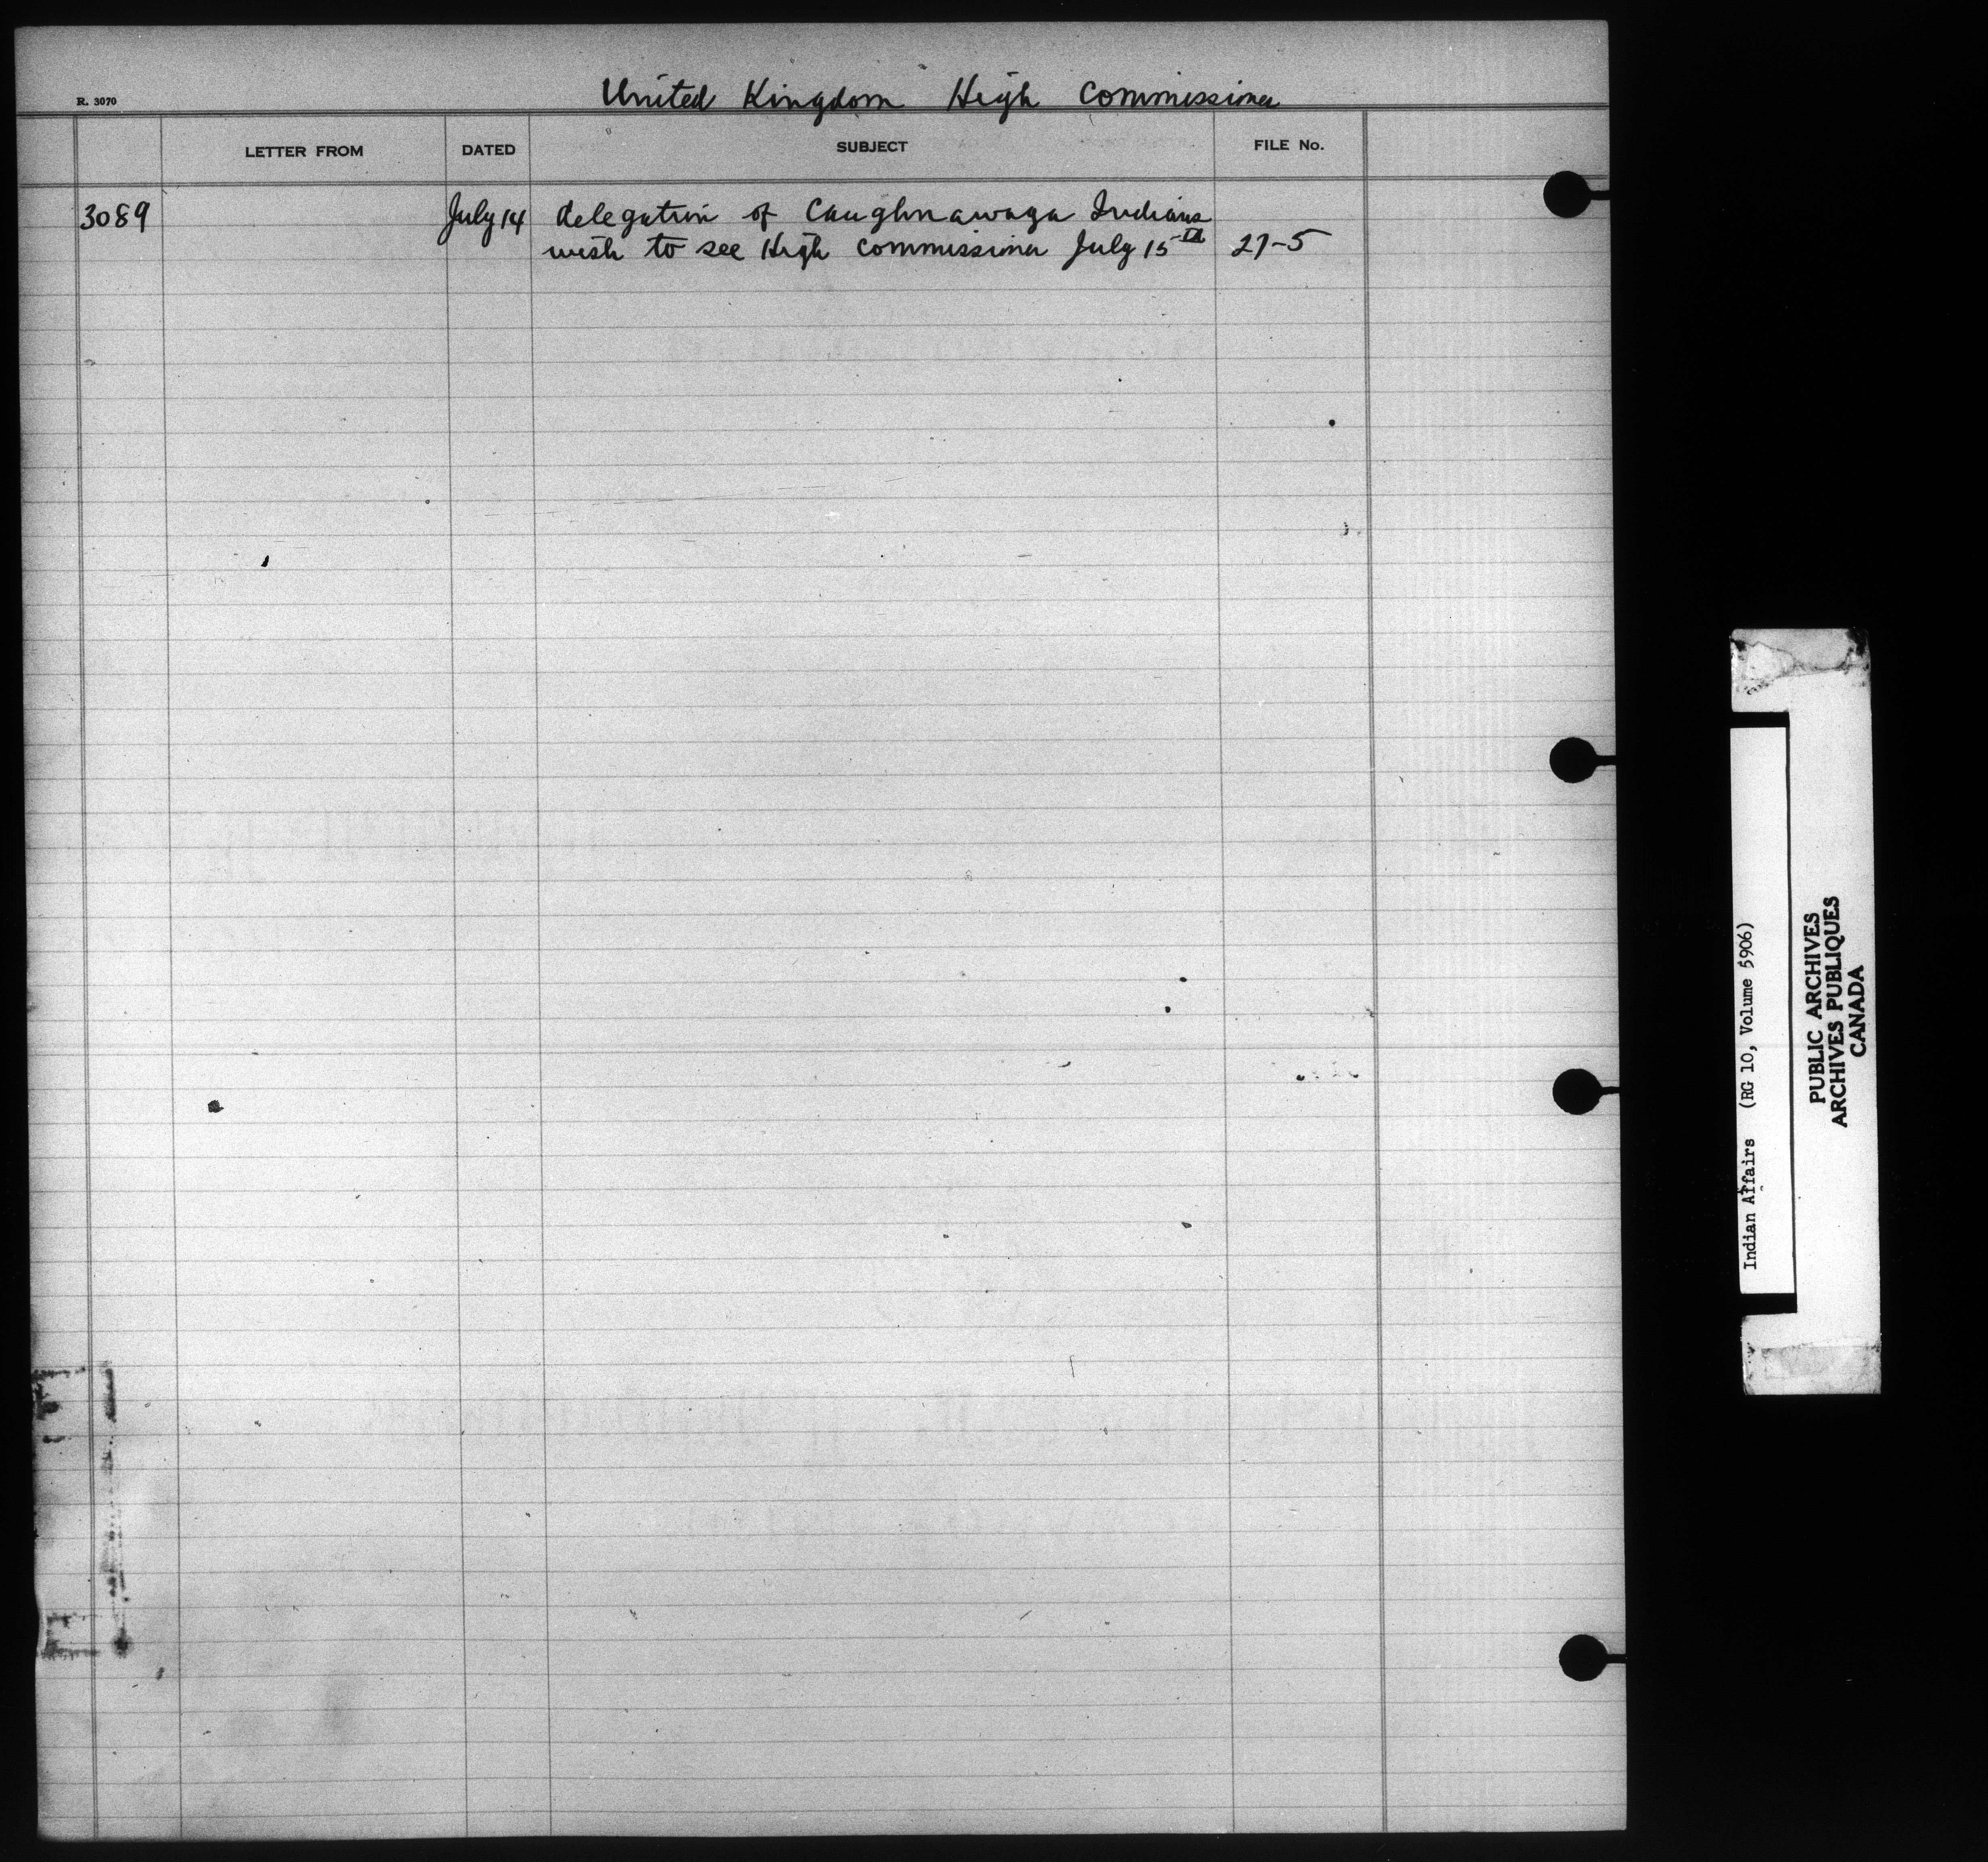 United Kingdom High Commissioner
R. 3070
LETTER FROM DATED SUBJECT FILE No.
3089 July 14 delegation of Caughnawaga Indians
wish to see High Commissioner July 15th 27-5
Indian Affairs (RG 10, Volume 5906)
PUBLIC ARCHIVES
ARCHIVES PUBLIQUES
CANADA